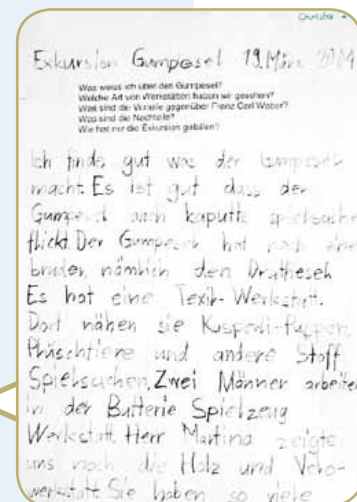 Exkursion Gumpesel 19. März 2014
Was weiss ich über den Gumpesel?
Welche Art von Werkstätten haben wir gesehen?
Was sind die Vorteile gegenüber Franz Carl Weber?
Was sind die Nachteile?
Wie hat mir die Exkursion gefallen?
Ich finds gut was der Gumpesel
macht. Es ist gut dass der
Gumpesel auch kaputte spielsache
flickt. Der Gumpesel hat noch eine
bruder, nämlich den Drathesel.
Es hat eine Textil-Werkstatt.
Dort nähen sie Kasperli-Puppen,
Plüschtiere und andere Stoff
Spielsachen. Zwei Männer arbeiten
in der Batterie Spielzeug
Werkstatt. Herr Martina zeigte
uns noch die Holz und Velo-
werkstatt. Sie haben so viele